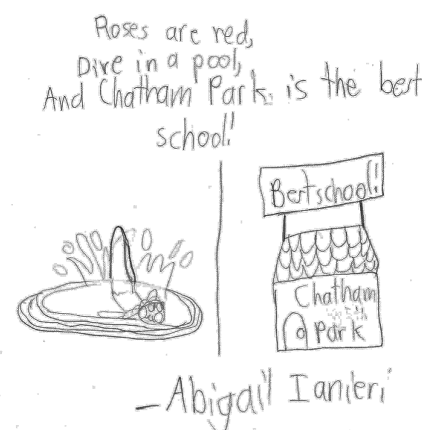 Roses are red,
Dive in a pool,
And Chatham Park is the best
school!
Bestschool!
Chatham
Park
- Abigail Ianieri